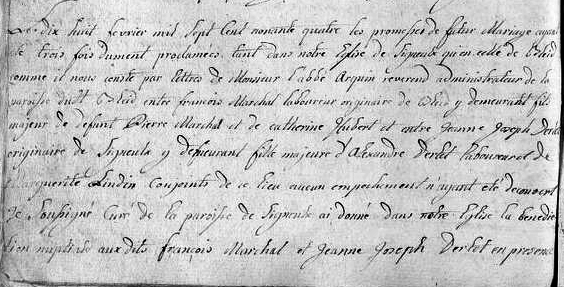 Le dix huit fevrier mil sept cent nonante quatre les promesses de futur Mariage ayant
été trois fois dument proclamées tant dans notre Eglise de Signeulx qu'en celle de Bleid
comme il nous conste par lettres de Monsieur l'abbé Arquin reverend administrateur de la
paroisse dudit Bleid entre francois Marchal laboureur originaire de Bleid y demeurant fils
majeur de defunt Pierre Marchal et de catherine Hubert et entre Jeanne Joseph Derlet
originaire de Signeulx y demeurant fille majeure d'Alexandre Derlet laboureur et de
Marguerite Lindin Conjoints de ce lieu aucun empechement n'ayant été decouvert
Je Soussigné Curé de la paroisse de Signeulx ai donné dans notre Eglise la benedic
tion nuptiale auxdits françois Marchal et Jeanne Joseph Derlet en presence